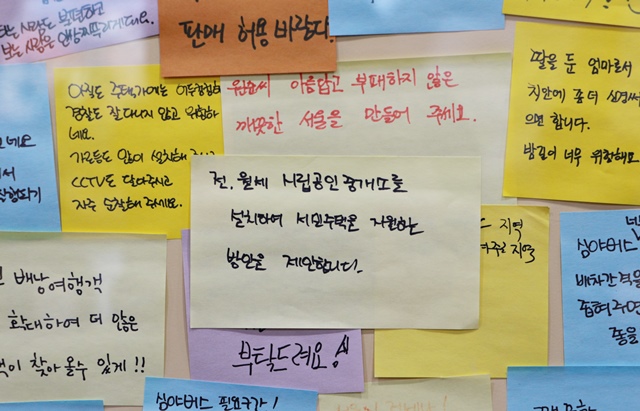 사람도 불편하고
보는 사람은 인상찌푸려게되네요.
판매 허용 바란다.
아직도 주택가에는 어두컴컴하
경찰도 잘 다니지 않고 위험하
네요.
가로등도 많이 설치해 주시
CCTV도 달아주시고
자주 순찰해 주세요.
원순씨 아름답고 부패하지 않은
깨끗한 서울을 만들어 주세요.
딸을 둔 엄마로서
치안에 좀 더 신경써
으면 합니다.
밤길이 너무 위험해요
네요
전.월세 시립공인중개소를
설치하여 서민주택을 지원하는
방안을 제안합니다.
지역
지역
심야버스
배차간격을
좁혀주면
좋을
배낭여행객
확대하여 더 많은
찾아올수 있게!!
부탁드려요!
심야버스 필요구간!